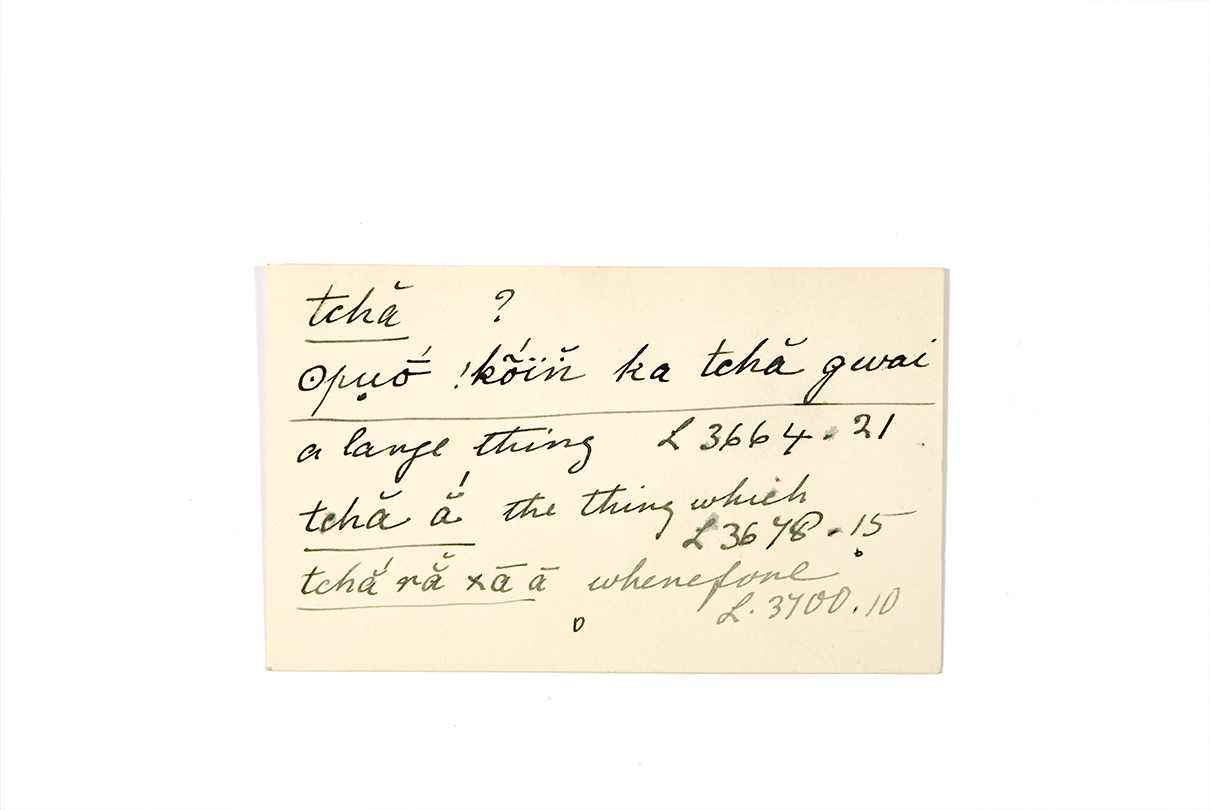 tchă ?
ʘpṷṓ !kṍïň ka tchă gwai
a large thing L 3664.21
tchă ắ the thing which
L 3678.15
tchắ ră xā ā wherefore
L. 3700.10
D